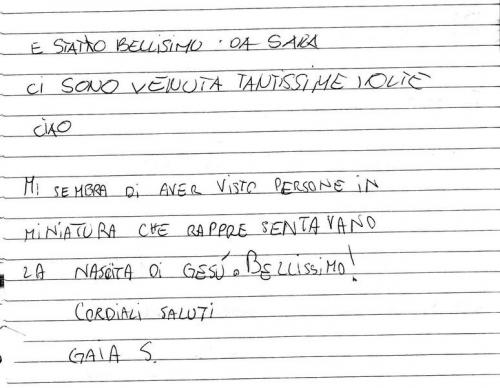 E STATTO BELLISIMO. DA SARA
CI SONO VENUTA TANTISSIME VOLTE
CIAO
MI SEMBRA DI AVER VISTO PERSONE IN
MINIATURA CHE RAPPRESENTAVANO
LA NASCITA DI GESÚ. BELLISSIMO!
CORDIALI SALUTI
GAIA S.